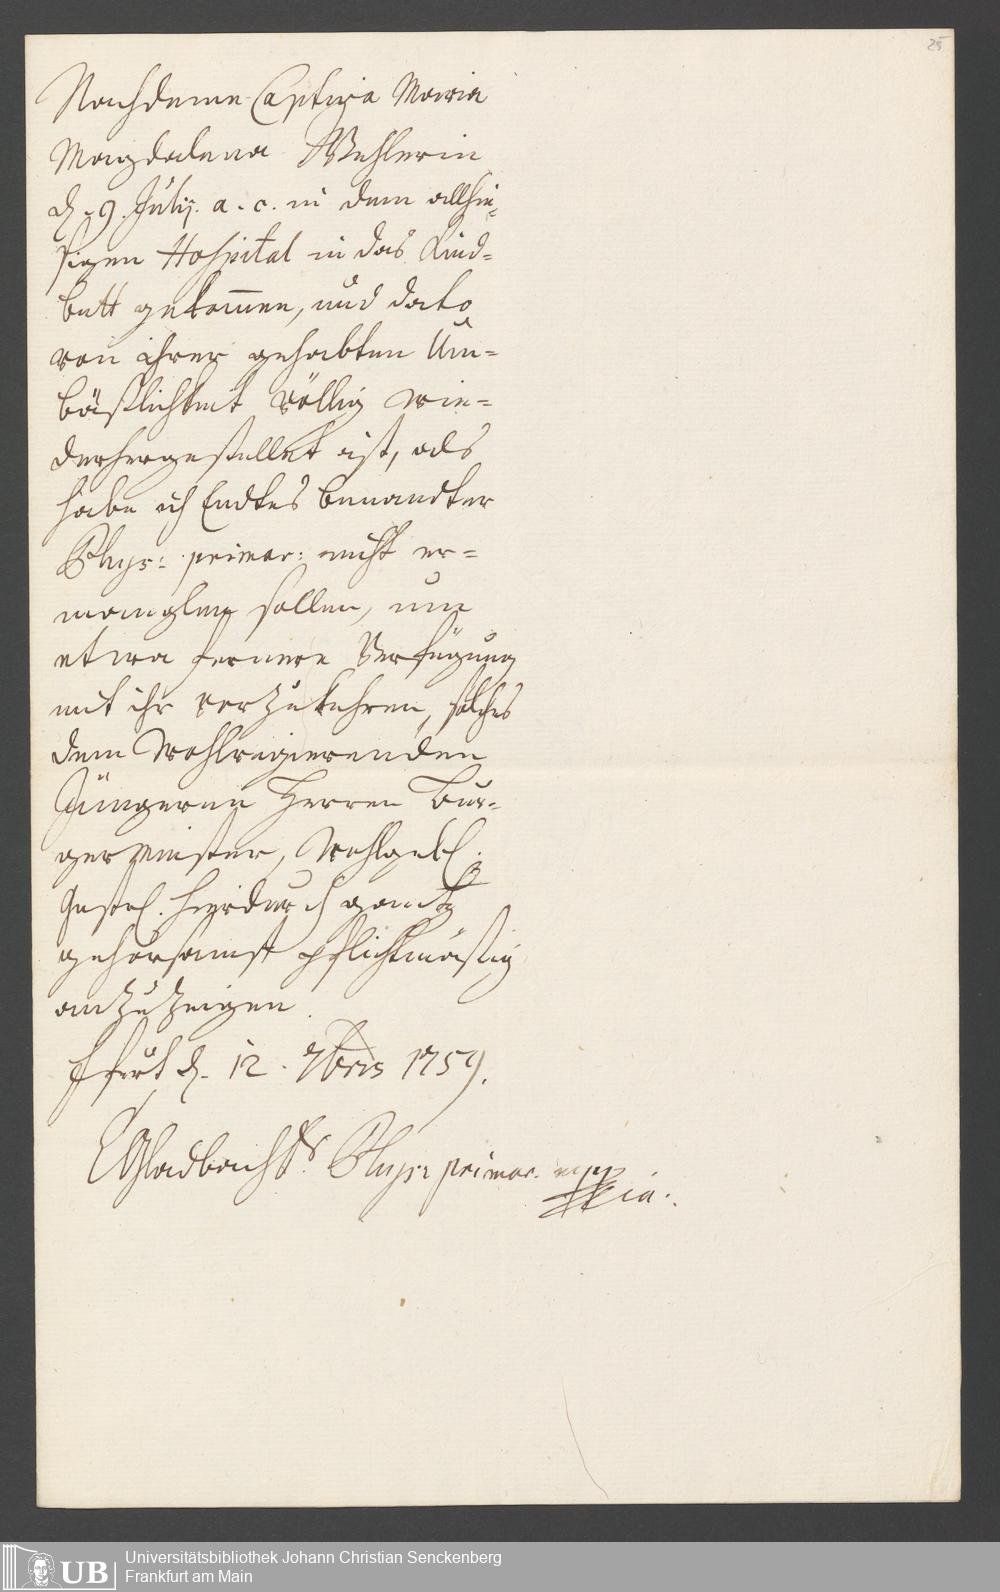 25
Nachdeme Captiva Maria
Magdalena Wehlerin
d. 9. Julij. a. c. in dem allhie-
sigen Hospital in das Kind-
bett gekom̅en, und dato
von ihrer gehabten Un-
bäßlichkeit völlig wie-
derhergestellet ist, als
habe ich Endes benandter
Phys: primar: nicht er-
manglen sollen, um
etwa fernere Verfügung
mit ihr vorzukehren, solches
dem Wohlregierenden
Jüngeren Herren Bur-
germeister, Wohlgebl.
Gestrl. hierdurch gantz
gehorsamst pflichtmäsig
anzuzeigen.
Ffurt d. 12. 7bris 1759.
Gladbach Dr. Phys: primar. mpp
ria.
Universitätsbibliothek Johann Christian Senckenberg
Frankfurt am Main
UB